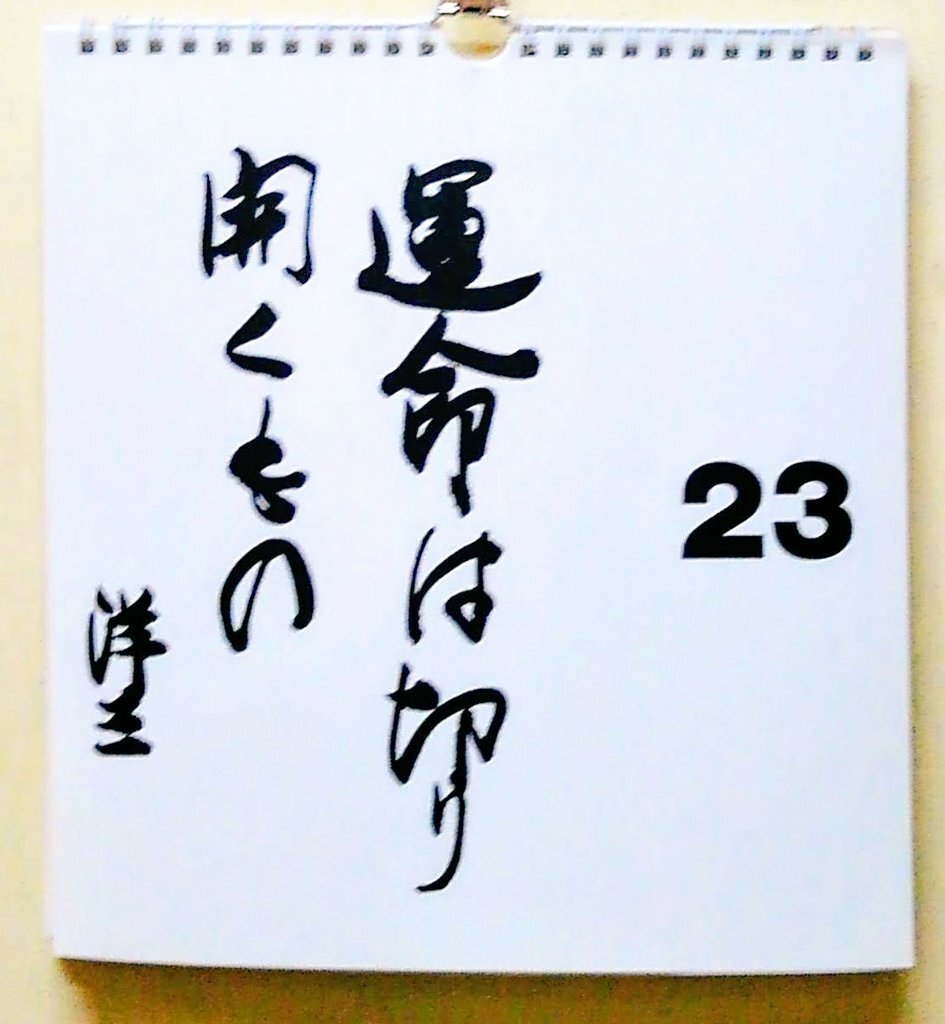 23
運命は切り
開くもの
洋三